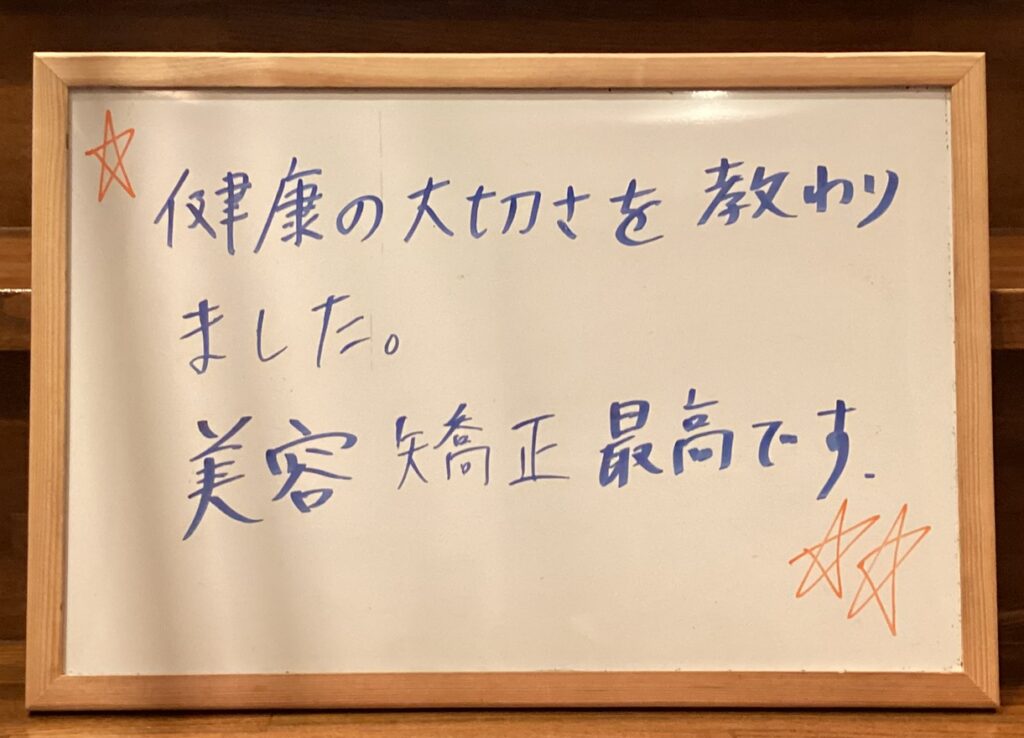 健康の大切さを教わり
ました。
美容矯正最高です.